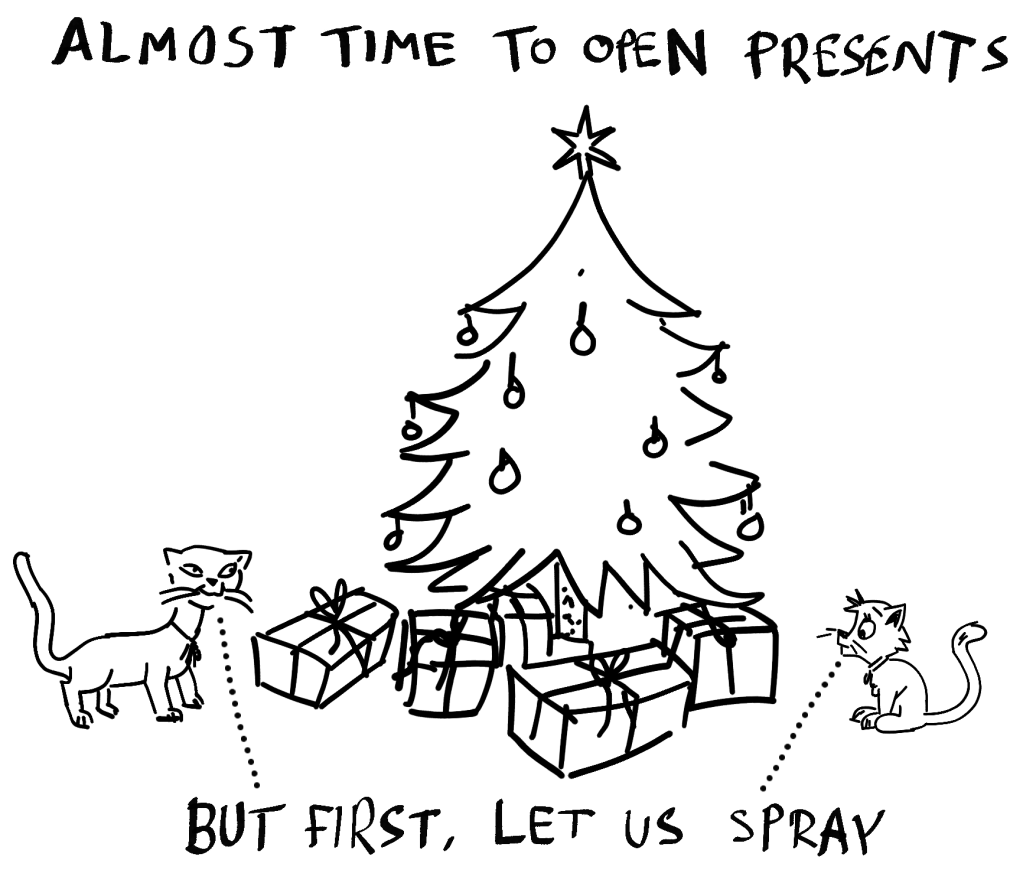 ALMOST TIME TO OPEN PRESENTS
BUT FIRST, LET US SPRAY